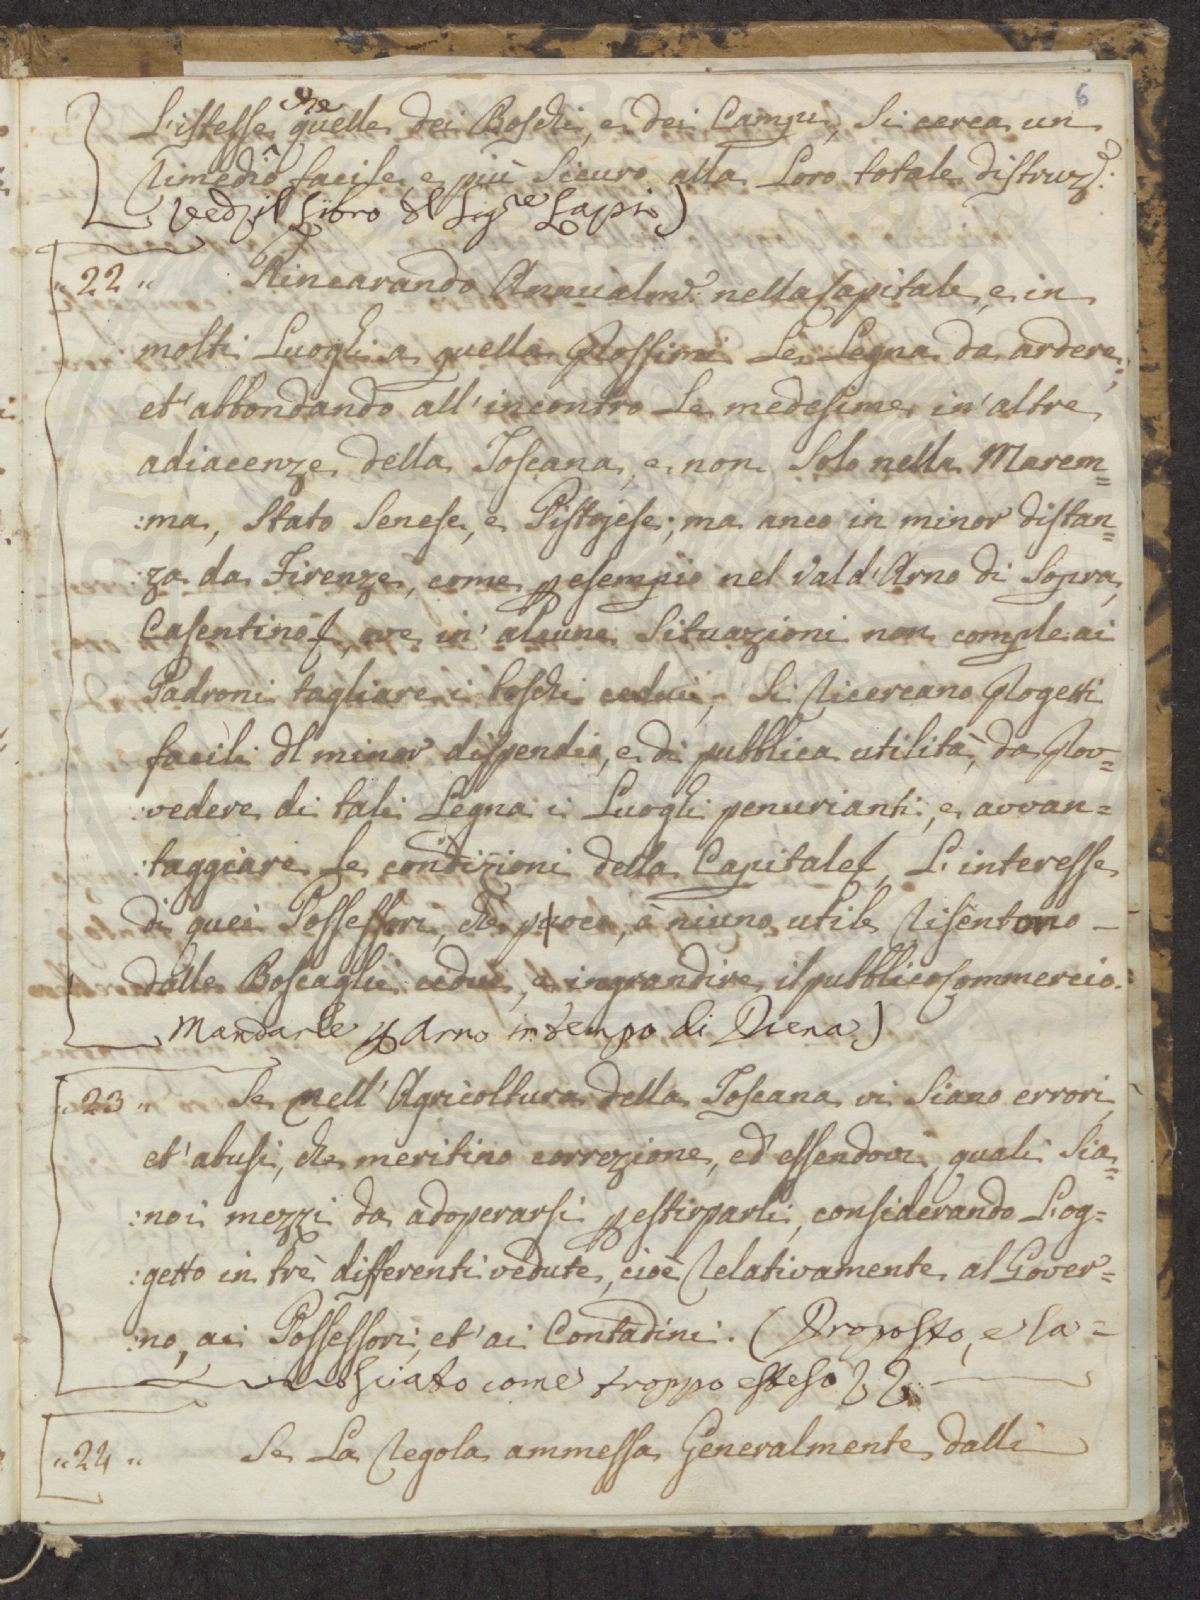 6
che
L'istesse quelle dei Boschi, e dei Campi, Si cerca un
Rimedio facile, e più Sicuro alla Loro totale distruz.e
(Vedi il Libro del Sig.re Lapi)
"22" Rincarando Annualm.e nella Capitale, e in
molti Luoghi a quella Prossimi Le Legna da ardere,
et' abbondando all' incontro Le medesime in' altre
adiacenze della Toscana, e non Solo nella Marem=
:ma, Stato Senese, e Pistojese; ma anco in minor distan=
:za da Firenze, come p esempio nel Vald'Arno di Sopra,
Casentino, ove in' alcune Situazioni non comple ai
Padroni tagliare i boschi cedui; Si Ricercano Progetti
facili dl minor dispendio, e di pubblica utilità, da Prov=
:vedere di tali Legna i Luoghi penurianti, e avvan=
:taggiare Le condizioni della Capitale, L'interesse
di quei Possessori, che poco, ò niuno utile Risentono
dalle Boscaglie cedue, e ingrandire il pubblico Commercio.
Mandarle p Arno in tempo di Piena)
"23" Se nell' Agricoltura della Toscana vi Siano errori,
et' abusi, che meritino correzione, ed' essendovi, quali Sia=
:no i mezzi da adoperarsi p estirparli, considerando L'og=
:getto in trè differenti vedute, cioè Relativamente al Gover=
:no, ai Possessori, et' ai Contadini. (Proposto, e la=
sciato come troppo esteso
"24" Se La Regola ammessa Generalmente dalli